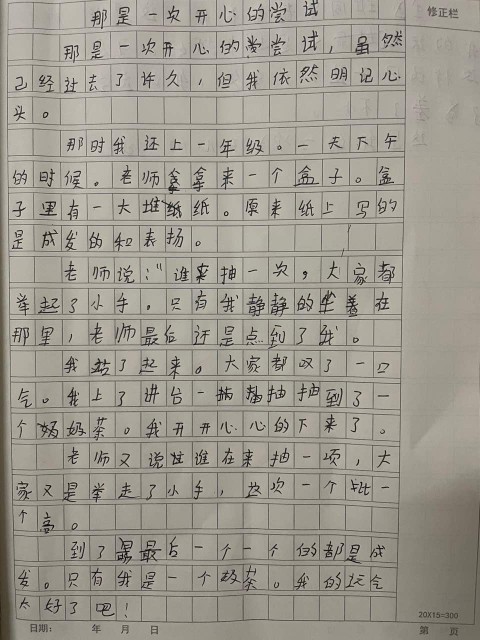 修正栏
那是一次开心的尝试
那是一次开心的尝试，虽然
己经过去了许久，但我依然明记心
头。
那时我还上一年级。一天下午
的时候。老师拿来一个盒子。盒
子里有一大堆纸。原来纸上写的
是成发的和表扬。
老师说："谁来抽一次，大家都
举起了小手。只有我静静的坐着在
那里，老师最后还是点到了我。
我站了起来。大家都叹了一口
气。我上了讲台一抽抽到了一
个奶茶。我开开心心的下来了。
老师又说谁在来抽一项，大
家又是举走了小手，这次一个比一
个高。
到了最后一个一个的都是成
发。只有我是一个奶茶。我的运气
太好了吧！
20X15=300
日期： 年 月 日 第 页